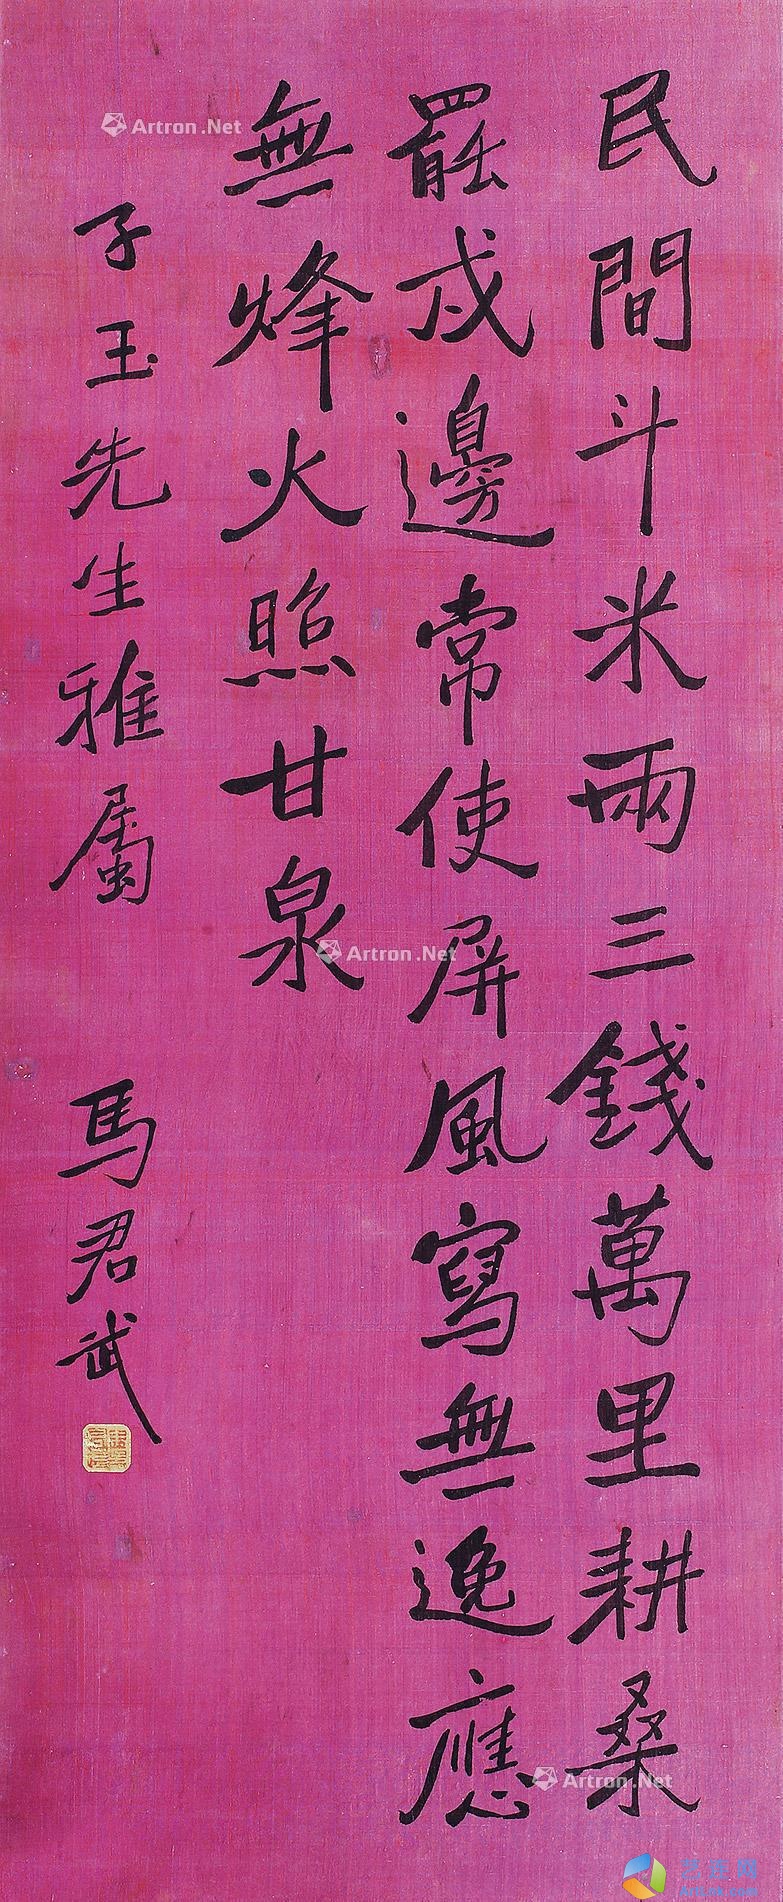 民間斗米兩三錢萬里耕桑
罷戍邊常使屏風寫無逸應
無烽火照甘泉
子玉先生雅屬 馬君武
Artron.Net
Artron.Net
Artron.Net